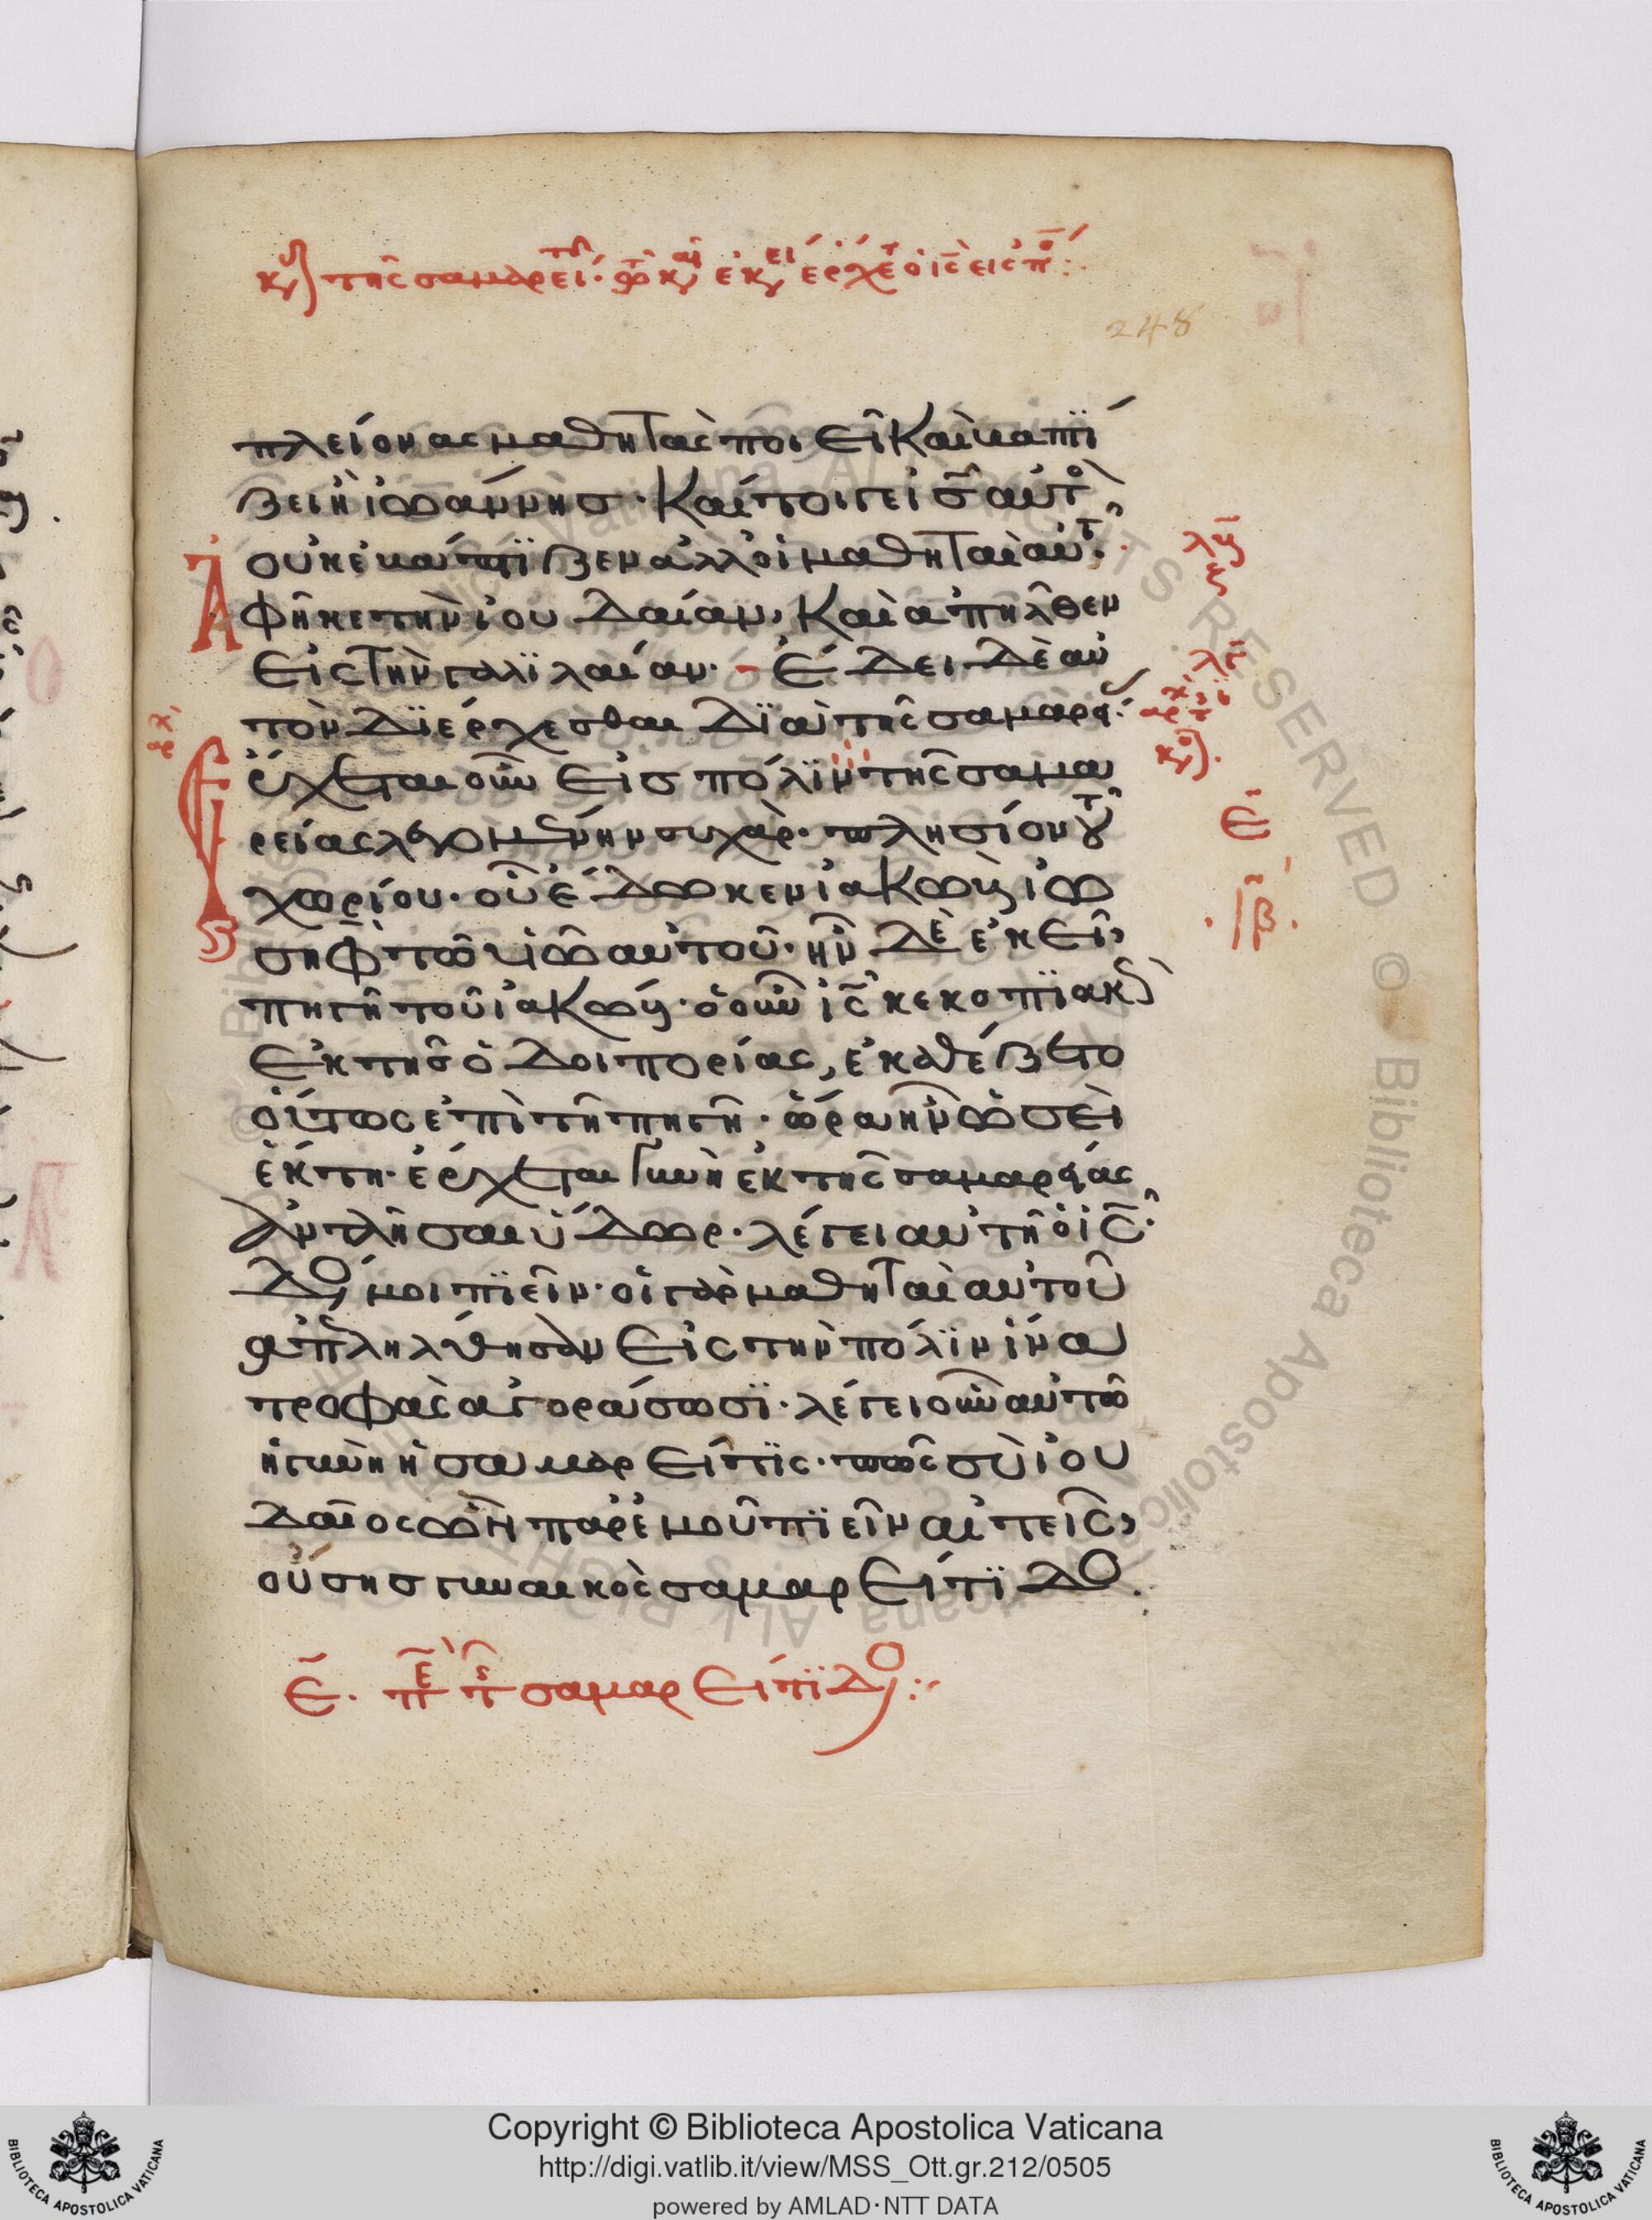 κυ) της σαμαρει. τω και εκει ερχε ο ις εις π :.
248
πλείονας μαθητὰς ποιεῖ καὶ βαπτί
ζει ἢ ἰωάννησ· καίτοιγε ἰσ αὐτὸ(ς)
οὐκ ἐβάπτϊζεν ἀλλ' οἱ μαθηταὶ αὐτ·
Ἀφῆκε τὴν ἰουδαίαν, καὶ ἀπῆλθεν
εἰς τὴν γαλϊλαίαν· - ἔδει δὲ αὐ
τὸν δϊέρχεσθαι δϊὰ τῆς σαμαρεί·
Ἔρχεται οὖν εἰσ πόλϊν τῆς σαμα
ρείας λεγομένην συχὰρ· πλησίον τοῦ
χωρίου· οὗ ἔδωκεν ἰακὼβ ἰω
σὴφ τῶ υἱῶ αὐτοῦ· ἦν δὲ ἐκεῖ,
πηγὴ τοῦ ἰακώβ· ὁ οὖν ις κεκοπϊακὼς
ἐκ τῆσ ὁδοιπορίας, ἐκαθέζετο
οὕτως ἐπὶ τῆ πηγῆ· ὥρα ἦν ὡσεὶ
ἕκτη· ἔρχεται γυνὴ ἐκ τῆς σαμαρείας
ἀντλῆσαι ὕδωρ· λέγει αὐτῆ ὁ ις·
δός μοι πϊεῖν· οἱ γὰρ μαθηταὶ αὐτοῦ
ἀπεληλύθησαν εἰς τὴν πόλϊν ἵνα
τροφὰς ἀγοράσωσϊ· λέγει οὖν αὐτῶ
ἡ γυνὴ ἡ σαμαρεῖτϊς· πῶς σὺ ἰου
δαῖος ὢν παρ' ἐμοῦ πϊεῖν αἰτεῖς,
οὔσησ γυναικὸς σαμαρείτϊδο.
ε. π π σαμαρείτϊδο :.
Copyright © Biblioteca Apostolica Vaticana
http://digi.vatlib.it/view/MSS_Ott.gr.212/0505
powered by AMLAD·NTT DATA
BIBLIOTECA APOSTOLICA VATICANA
BIBLIOTECA APOSTOLICA VATICANA